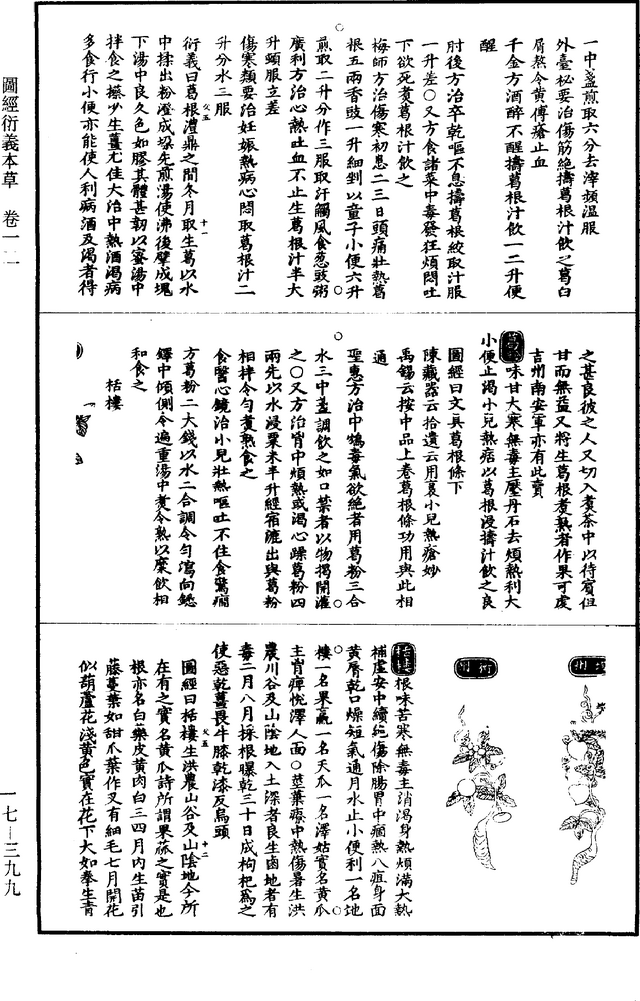 一中盞煎取六分去滓頻溫服
外臺秘要治傷筋絕擣葛根汁飲之葛白
屑熬令黃傅瘡止血
千金方酒醉不醒擣葛根汁飲一二升便
醒
肘後方治卒乾嘔不息擣葛根絞取汁服
一升差○又方食諸菜中毒發狂煩悶吐
下欲死煑葛根汁飲之
梅師方治傷寒初患二三日頭痛壯熱葛
根五兩香豉一升細剉以童子小便六升
煎取二升分作三服取汗觸風食葱豉粥
廣利方治心熱吐血不止生葛根汁半大
升頓服立差
傷寒類要治妊娠熱病心悶取葛根汁二
升分水三服
衍義曰葛根澧鼎之間冬月取生葛以水
中揉出粉澄成垜先煎湯使沸後擘成塊
下湯中良久色如膠其體甚韌以蜜湯中
拌食之擦少生薑尤佳大治中熱酒渴病
多食行小便亦能使人利病酒及渴者得
之甚良彼之人又切入煑茶中以待賓但
甘而無益又將生葛根煑熟者作果可虔
吉州南安軍亦有此賣
葛粉味甘大寒無毒主壓丹石去煩熱利大
小便止渴小兒熱痞以葛根浸擣汁飲之良
圖經曰文具葛根條下
陳藏器云拾遺云用裛小兒熱瘡妙
禹錫云按中品上卷葛根條功用與此相
通
聖惠方治中鴆毒氣欲絕者用葛粉三合
水三中盞調飲之如口噤者以物揭開灌
之○又方治胷中煩熱或渴心躁葛粉四
兩先以水浸粟米半升經宿漉出與葛粉
相拌令勻煑熟食之
食醫心鏡治小兒壯熱嘔吐不住食驚癇
方葛粉二大錢以水二合調令勻瀉向鋺
鑼中傾側令遍重湯中煑令熟以糜飲相
和食之
栝樓
栝樓根味苦寒無毒主消渴身熱煩滿大熱
補虛安中續絕傷除腸胃中痼熱八疸身面
黃脣乾口燥短氣通月水止小便利一名地
樓一名果臝一名天瓜一名澤姑實名黃瓜
主胷痺悅澤人面○莖葉療中熱傷暑生洪
農川谷及山陰地入土深者良生鹵地者有
毒二月八月採根曝乾三十日成枸杞為之
使惡乾薑畏牛膝乾漆反烏頭
圖經曰栝樓生洪農山谷及山陰地今所
在有之實名黃瓜詩所謂果蓏之實是也
根亦名白藥皮黃肉白三四月內生苗引
藤蔓葉如甜瓜葉作叉有細毛七月開花
似葫蘆花淺黃色實在花下大如拳生青
圖經衍義本草 卷一二
一七—三九九